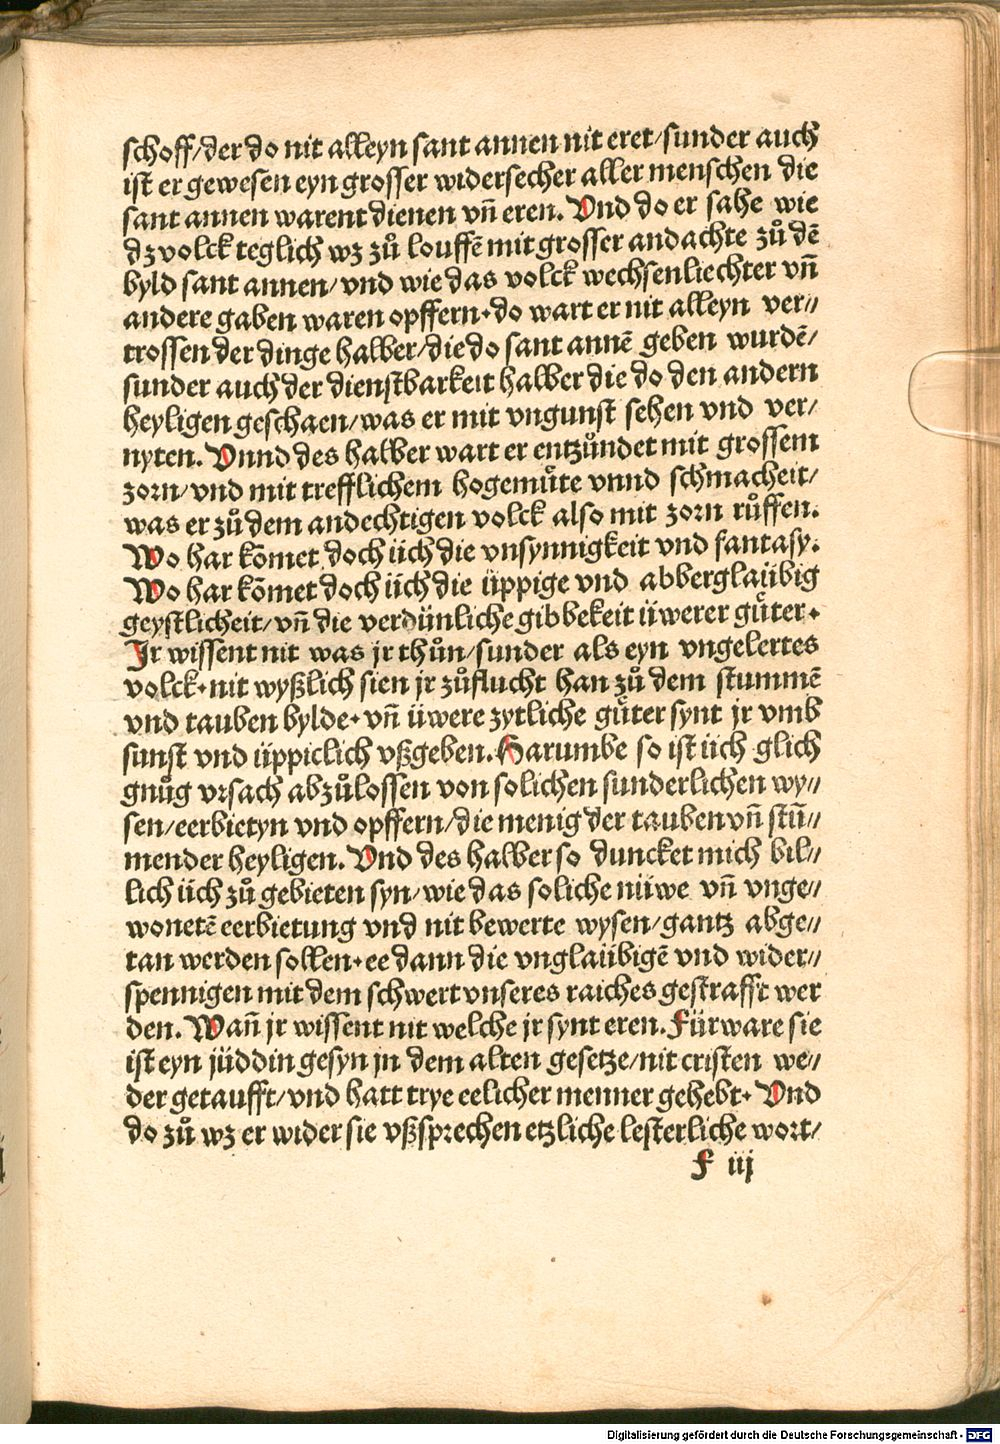 schoff/der do nit alleyn sant annen nit eret/sunder auch
ist er gewesen eyn grosser widersecher aller menschen die
sant annen warent dienen vn̄ eren. Vnd do er sahe wie
dz volck teglich wz zů louffē mit grosser andachte zů dē
byld sant annen/vnd wie das volck wechsenliechter vn̄
andere gaben waren opffern·do wart er nit alleyn ver//
trossen der dinge halber/die do sant annē geben wurdē/
sunder auch der dienstbarkeit halber die do den andern
heyligen geschaen/was er mit vngunst sehen vnd ver/
nyten. Vnnd des halber wart er entzůndet mit grossem
zorn/vnd mit trefflichem hogemůte vnnd schmacheit/
was er zů dem andechtigen volck also mit zorn růffen.
Wo har kōmet doch üch die vnsynnigkeit vnd fantasy.
Wo har kōmet doch üch die üppige vnd abberglaübig
geystlicheit/vn̄ die verdünliche gibbekeit üwerer gůter·
Jr wissent nit was jr thůn/sunder als eyn vngelertes
volck·nit wyßlich sien jr zůflucht han zů dem stummē
vnd tauben bylde·vn̄ üwere zytliche gůter synt jr vmb
sunst vnd üppiclich vßgeben. Harumbe so ist üch glich
gnůg vrsach abzůlossen von solichen sunderlichen wy//
sen/eerbietyn vnd opffern/die menig der tauben vn̄ stū//
mender heyligen. Vnd des halber so duncket mich bil//
lich üch zů gebieten syn/wie das soliche nüwe vn̄ vnge//
wonetē eerbietung vnd nit bewerte wysen/gantz abge//
tan werden sollen·ee dann die vnglaübigē vnd wider//
spennigen mit dem schwert vnseres raiches gestrafft wer
den. Wan̄ jr wissent nit welche jr synt eren. Fürware sie
ist eyn jüddin gesyn jn dem alten gesetze/nit cristen we//
der getaufft/vnd hatt trye eelicher menner gehebt· Vnd
do zů wz er wider sie vßsprechen etzliche lesterliche wort/
F iij
Digitalisierung gefördert durch die Deutsche Forschungsgemeinschaft - DFG